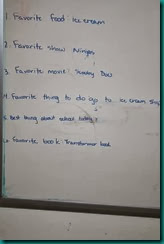 1. Favorite food ice cream
2. Favorite show Ninjago
3. Favorite movie: Scooby Doo
4. Favorite thing to do go to ice cream
5. Best thing about school
6. Favorite book: Transformer book